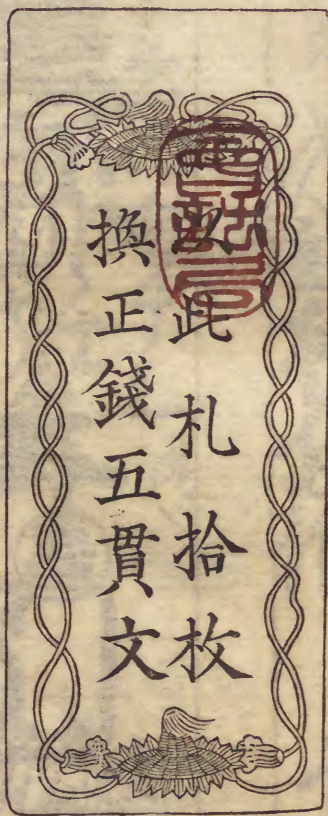 以此札拾枚
換正錢五貫文